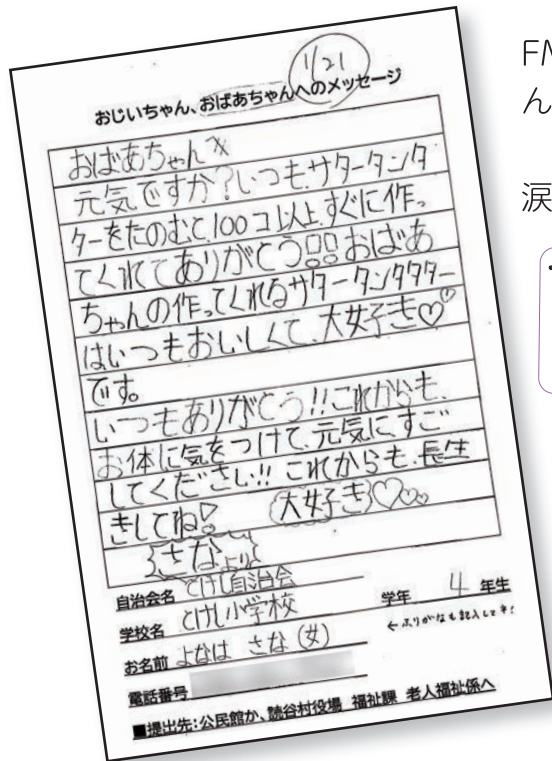 1/21
おじいちゃん、おばあちゃんへのメッセージ
おばあちゃんへ
元気ですか?いつも、サタータンダ
ターをたのむと、100コ以上、すぐに作っ
てくれてありがとう!!おばあ
ちゃんの作ってくれるサタータンダタター
はいつもおいしくて、大好き♡
です。
いつもありがとう!!これからも、
お体に気をつけて、元気にすご
してください!!これからも、長生
きしてね!大好き♡
さなより
自治会名 とけし自治会
学校名 とけし小学校 学年 4 年生
お名前 よなは さな(女) ←ふりがなも記入してネ!
電話番号
■提出先:公民館か、読谷村役場 福祉課 老人福祉係へ
FM
ん
涙